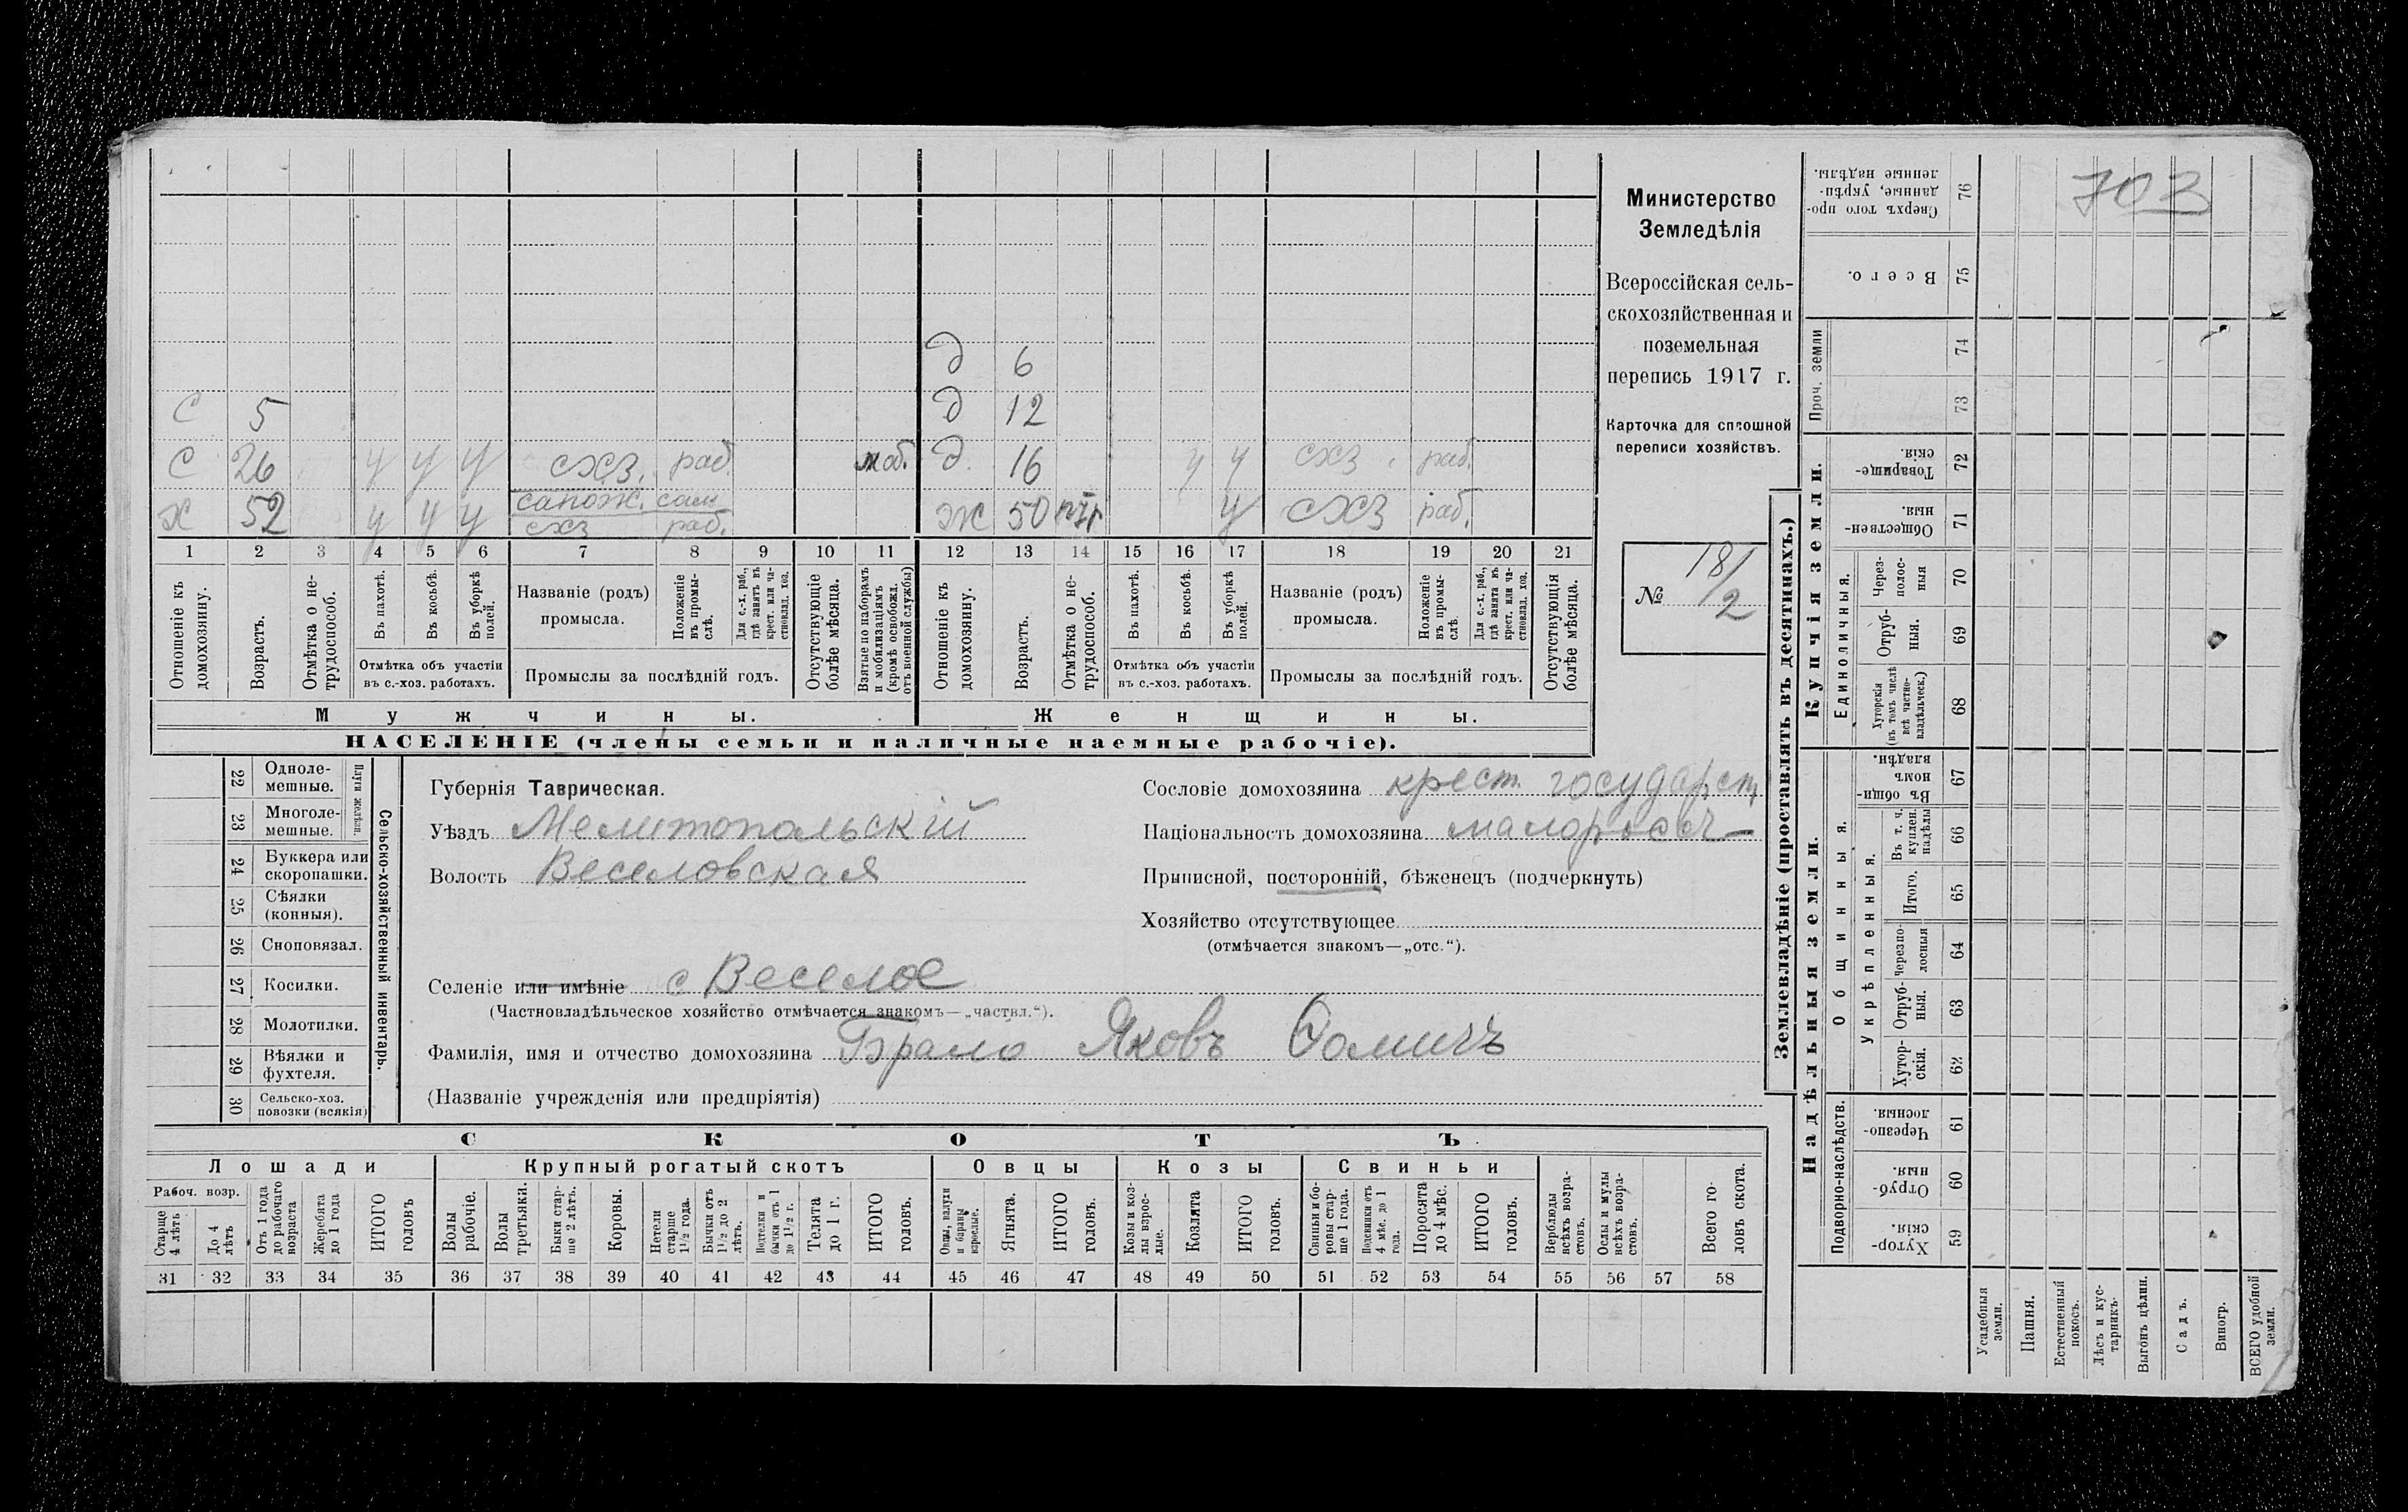 703
Министерство
Земледѣлія
Всероссійская сель-
скохозяйственная и
поземельная
перепись 1917 г.
Карточка для сплошной
переписи хозяйствъ.
№ 18/2
д 6
С 5 д 12
С 26 у у у схз. раб. моб. д 16 у у схз. раб.
сапож. сам
Х 52 у у у схз раб. Ж 50 у схз раб.
1 2 3 4 5 6 7 8 9 10 11 12 13 14 15 16 17 18 19 20 21
Отношеніе къ домохозяину.
Возрастъ.
Отмѣтка о не-трудоспособ.
Въ пахотѣ.
Въ косьбѣ.
Въ уборкѣ полей.
Отмѣтка объ участіи
въ с.-хоз. работахъ.
Названіе (родъ)
промысла.
Положеніе въ промы-слѣ.
Для с.-х. раб., гдѣ занятъ въ крест. или ча-стновлад. хоз.
Промыслы за послѣдній годъ.
Отсутствующіе болѣе мѣсяца.
Взятые по наборамъ и мобилизаціямъ (кромѣ освобожд. отъ военной службы)
Отношеніе къ домохозяину.
Возрастъ.
Отмѣтка о не-трудоспособ.
Въ пахотѣ.
Въ косьбѣ.
Въ уборкѣ полей.
Отмѣтка объ участіи
въ с.-хоз. работахъ.
Названіе (родъ)
промысла.
Положеніе въ промы-слѣ.
Для с.-х. раб., гдѣ занята въ крест. или ча-стновлад. хоз.
Промыслы за послѣдній годъ.
Отсутствующія болѣе мѣсяца.
Мужчины. Женщины.
НАСЕЛЕНІЕ (члены семьи и наличные наемные рабочіе).
22 Одноле-мешные.
23 Многоле-мешные.
Плуги желѣзн.
24 Буккера или скоропашки.
25 Сѣялки (конныя).
26 Сноповязал.
27 Косилки.
28 Молотилки.
29 Вѣялки и фухтеля.
30 Сельско-хоз. повозки (всякія)
Сельско-хозяйственный инвентарь.
Губернія Таврическая.
Уѣздъ Мелитопольскій
Волость Веселовская
Сословіе домохозяина крест. государст.
Національность домохозяина малоросс
Приписной, посторонній, бѣженецъ (подчеркнуть)
Хозяйство отсутствующее
(отмѣчается знакомъ—„отс.“).
Селеніе или имѣніе с Веселое
(Частновладѣльческое хозяйство отмѣчается знакомъ—„частвл.“).
Фамилія, имя и отчество домохозяина Яковъ Ѳомичъ
(Названіе учрежденія или предпріятія)
СКОТЪ
Лошади Крупный рогатый скотъ Овцы Козы Свиньи
Рабоч. возр.
Старше 4 лѣтъ
До 4 лѣтъ
Отъ 1 года до рабочаго возраста
Жеребята до 1 года
ИТОГО головъ
Волы рабочіе.
Волы третьяки.
Быки стар-ше 2 лѣтъ.
Коровы.
Нетели старше 1 1/2 года.
Бычки отъ 1 1/2 до 2 лѣтъ.
Подтелки и бычки отъ 1 до 1 1/2 г.
Телята до 1 г.
ИТОГО головъ.
Овцы, валухи и бараны взрослые.
Ягнята.
ИТОГО головъ.
Козы и коз-лы взрос-лые.
Козлята
ИТОГО головъ.
Свиньи и бо-ровы стар-ше 1 года.
Подсвинки отъ 4 мѣс. до 1 года.
Поросята до 4 мѣс.
ИТОГО головъ.
Верблюды всѣхъ возра-стовъ.
Ослы и мулы всѣхъ возра-стовъ.
Всего го-ловъ скота.
31 32 33 34 35 36 37 38 39 40 41 42 43 44 45 46 47 48 49 50 51 52 53 54 55 56 57 58
Землевладѣніе (проставлять въ десятинахъ.)
Надѣльныя земли.
Купчія земли.
Подворно-наслѣдств.
Хутор-скія. 59
Отруб-ныя. 60
Черезпо-лосныя. 61
Общинныя.
Укрѣпленныя.
Хутор-скія. 62
Отруб-ныя. 63
черезпо-лосныя 64
Итого. 65
Въ т. ч. куплен. надѣлы 66
Въ общи-номъ владѣн. 67
Единоличныя.
Хуторскія (въ томъ числѣ всѣ частно-владѣльческ.) 68
Отруб-ныя. 69
Через-полос-ныя 70
Обществен-ныя. 71
Товарище-скія. 72
Проч. земли
73 74
Всего. 75
Сверхъ того про-данные, укрѣп-ленные надѣлы. 76
Усадебныя земли.
Пашня.
Естественный покосъ.
Лѣсъ и кус-тарникъ.
Выгонъ цѣлин.
Садъ.
Виногр.
ВСЕГО удобной земли.